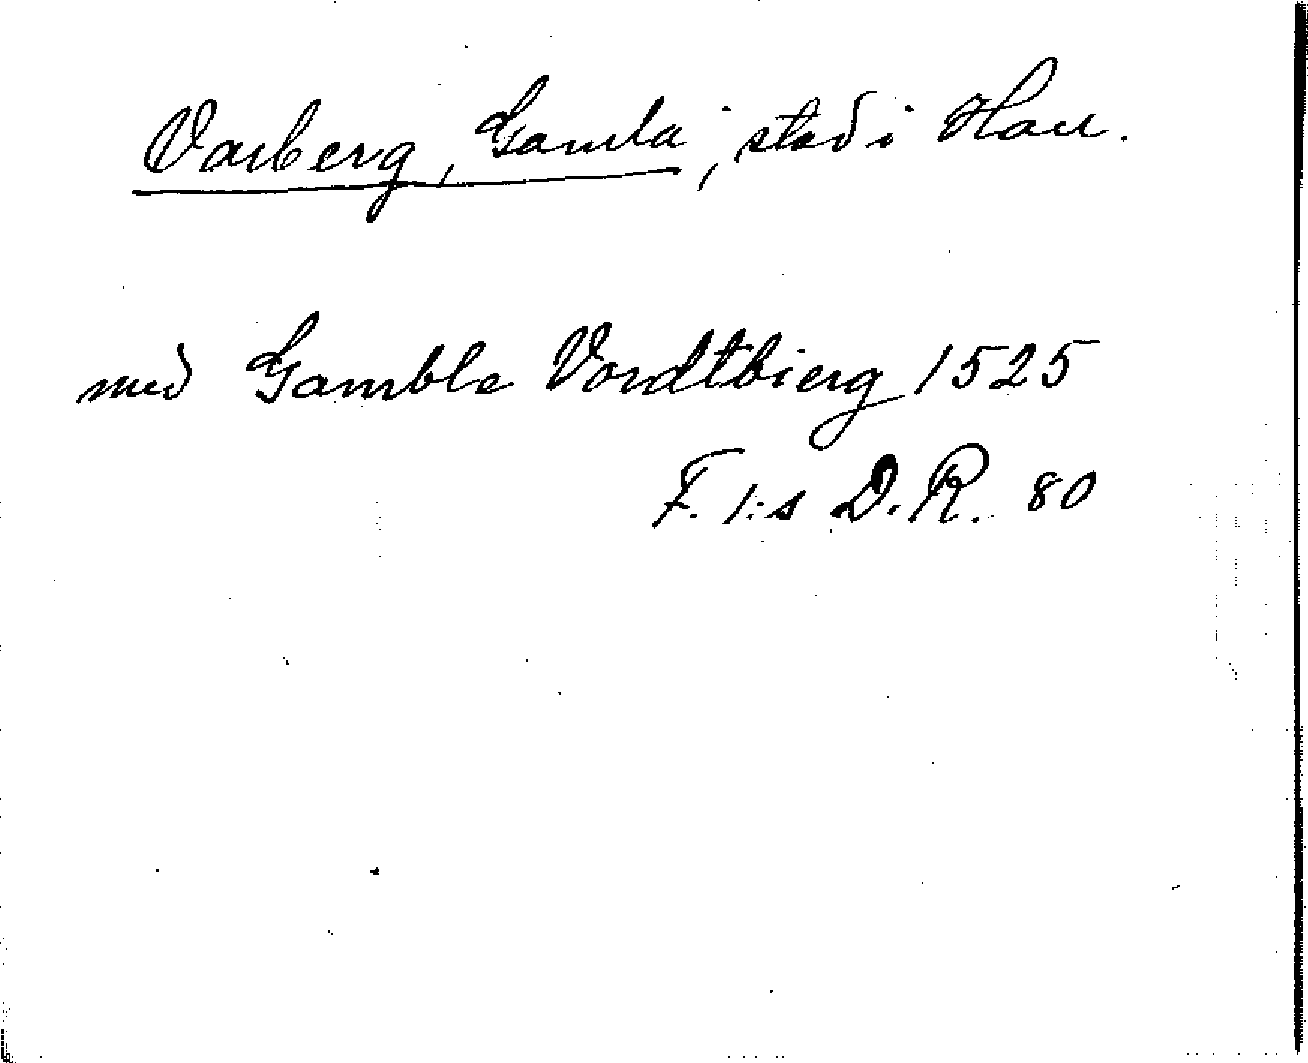 Varberg, Gamla, stad i Hall.
med Gamble Vordtbierg 1525
F. 1:s D.R. 80